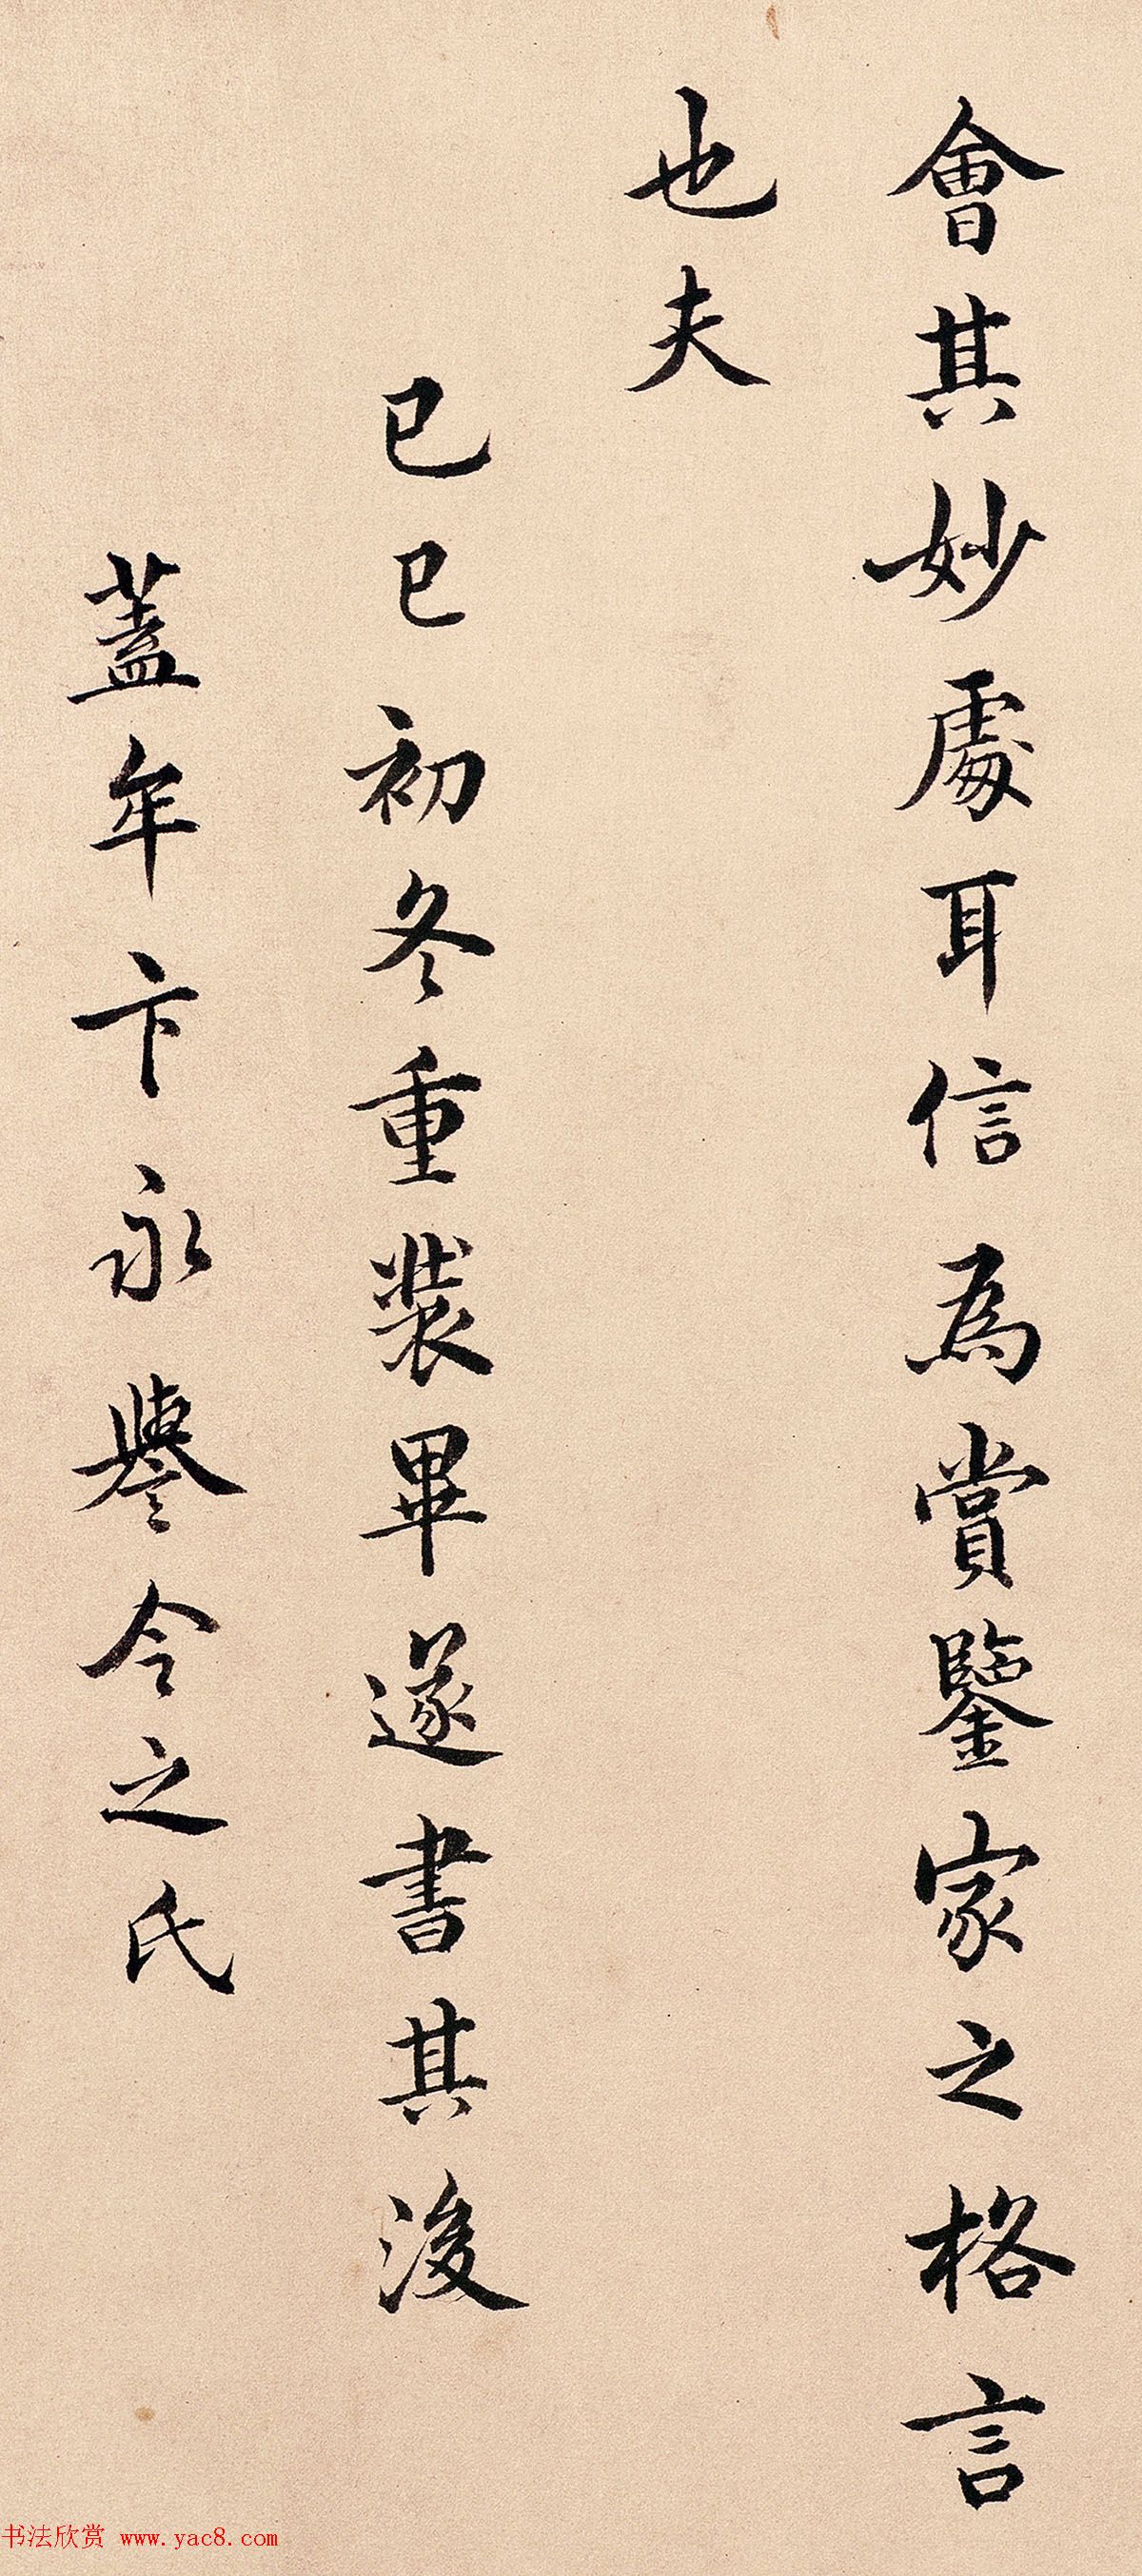 會其妙處耳信為賞鑒家之格言
也夫
己巳初冬重裝畢遂書其後
蓋牟卞永譽令之氏
书法欣赏 www.yac8.com